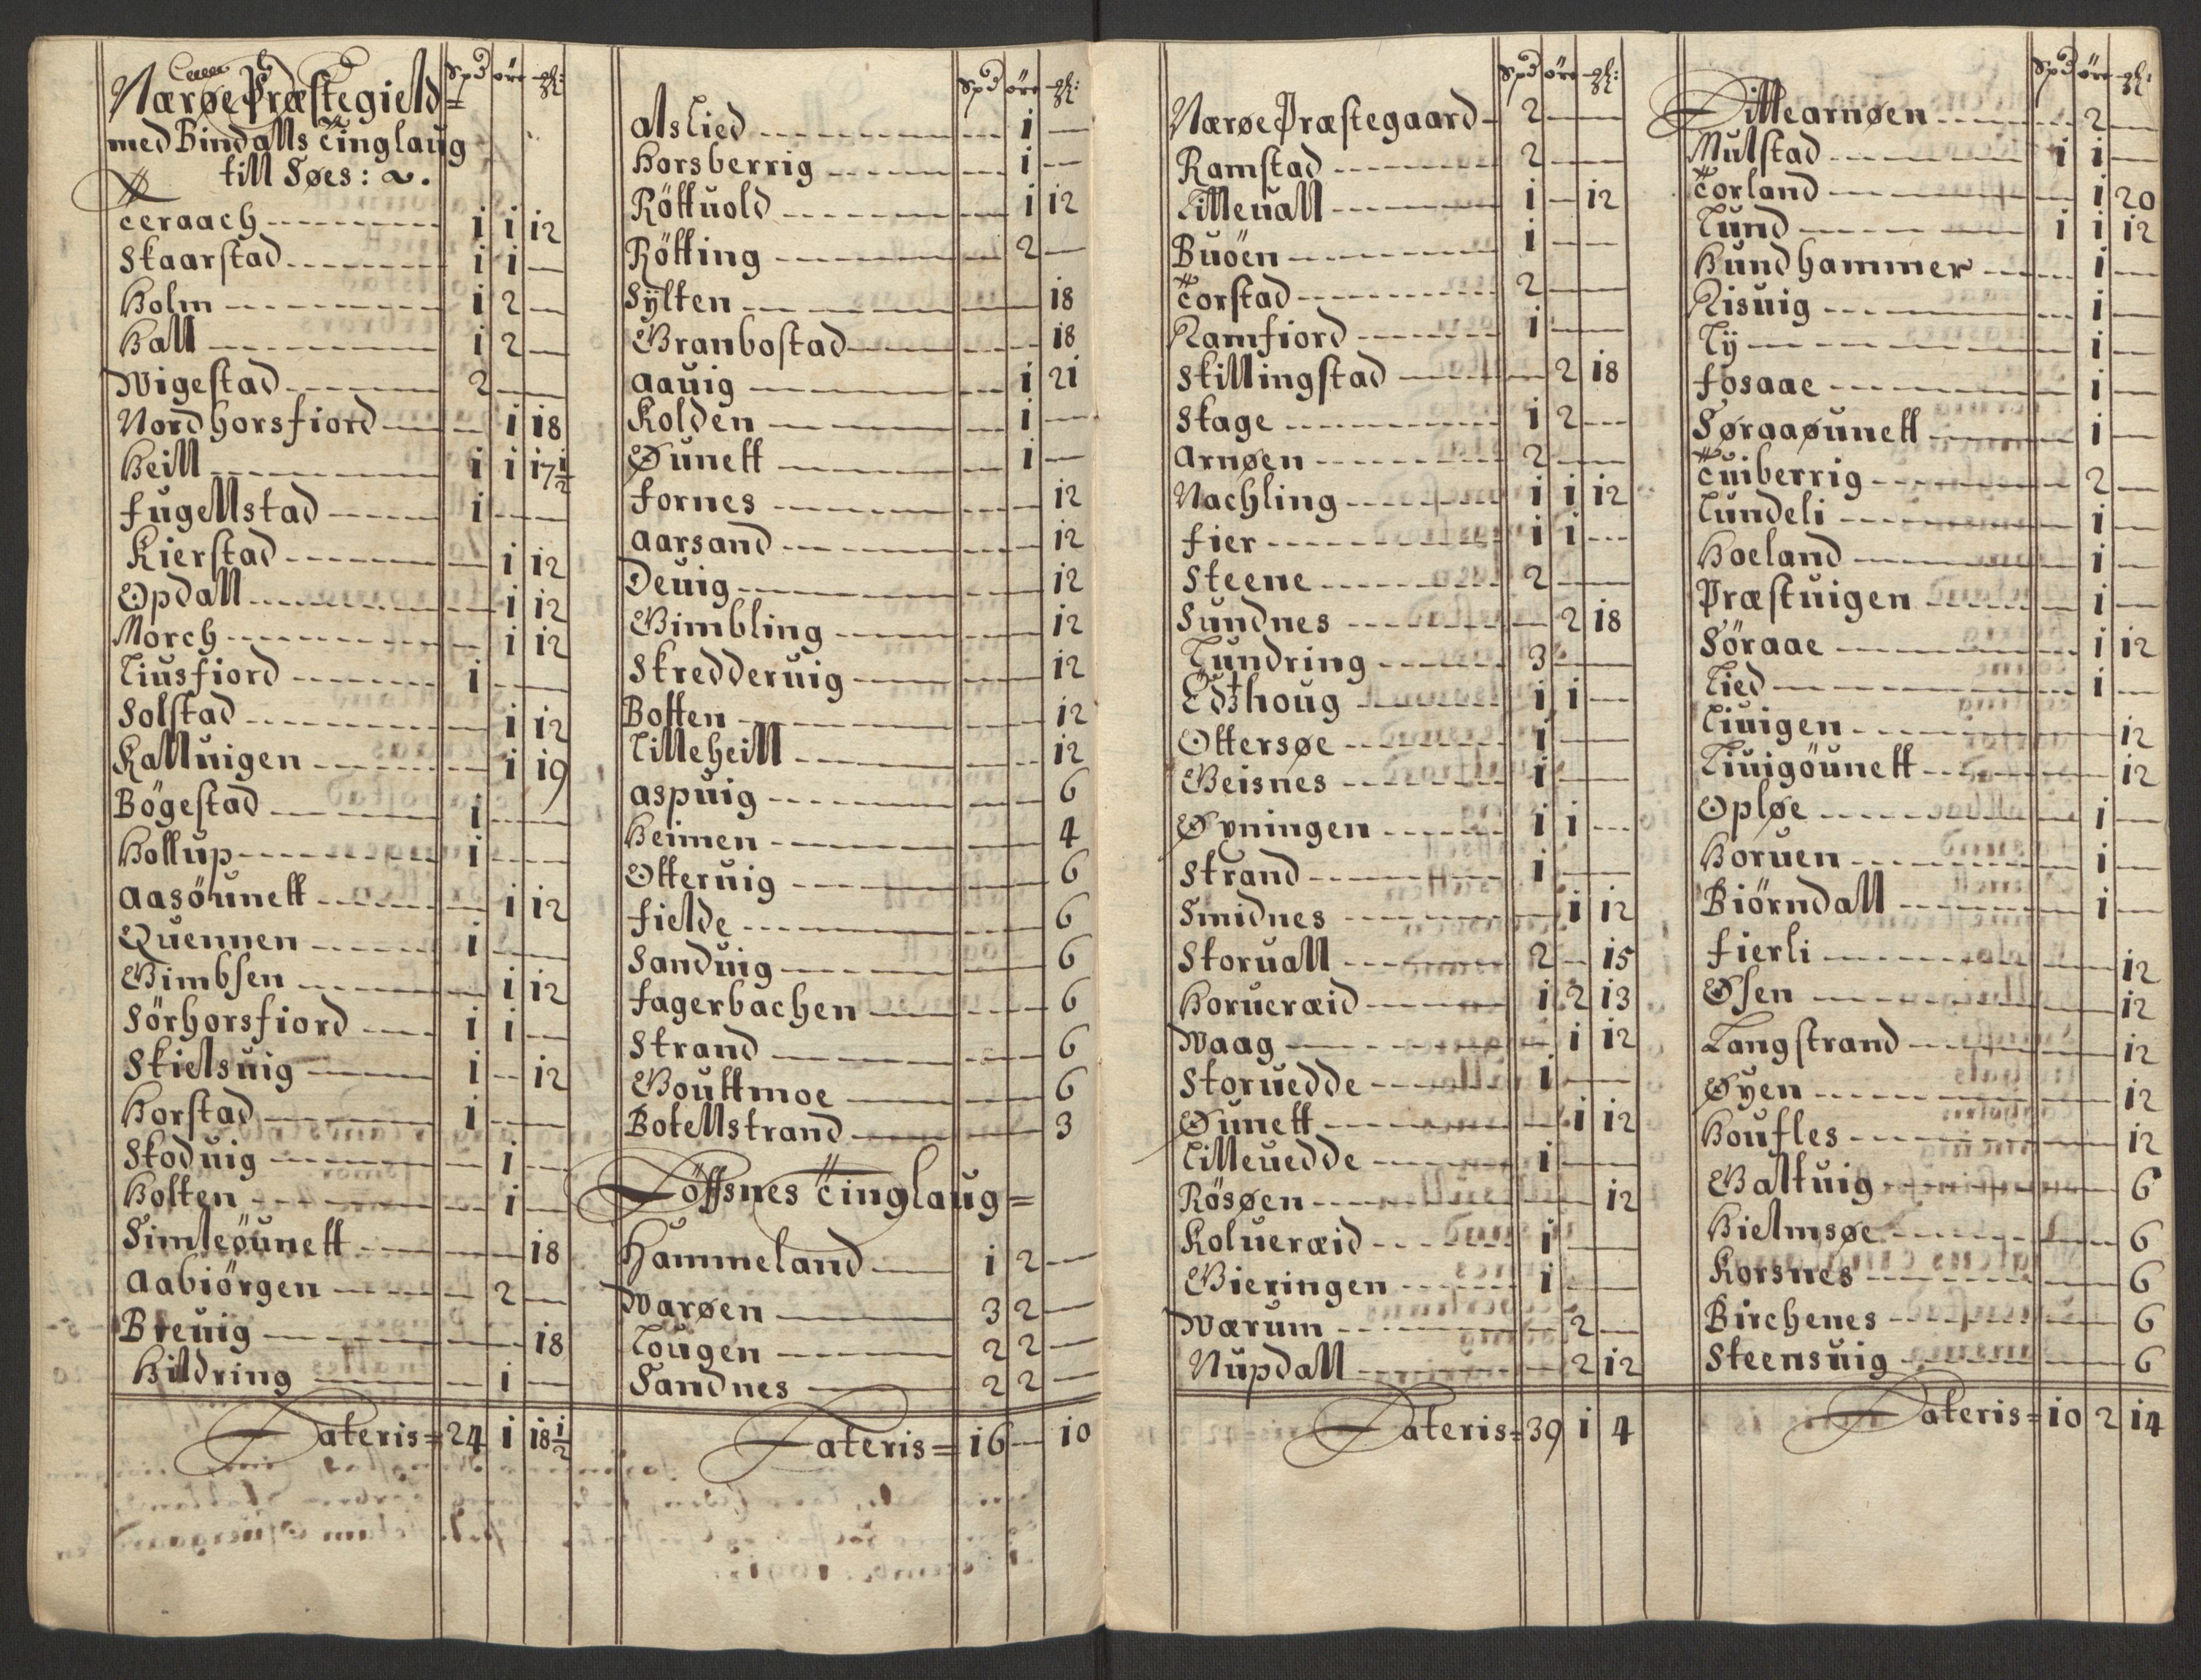 Nærøe Præstegield=
med Bindalls Tinglaug
till Søes:
Spd öre mk:
Teraach 1 1 12
Skaarstad 1 1 —
Holm 1 2 —
Hall 1 2 —
Wigestad 2 — —
Nordhorsfiord — 1 18
Heill 1 1 17½
Fugellstad 1 — —
Kierstad — 1 12
Opdall — 1 12
Morch — 1 12
Liusfiord 1 — —
Solstad — 1 12
Kalluigen — 1 19
Bögestad 1 — —
Hollup 1 — —
Aasöunett — 1 12
Quennen 1 — —
Gimbsen — 1 12
Sörhorsfiord 1 1 —
Skielsuig 1 — 12
Horstad 1 — —
Skoduig — 1 —
Holten — 1 —
Simleöunett — — 18
Aabiörgen — 2 —
Breuig — — 18
Hildring — 1 —
Lateris= 24 1 18½
Spd öre mk:
Alslied — 1 —
Horsberrig — 1 —
Röttuold — 1 12
Rötting — 2 —
Sylten — — 18
Granbostad — — 18
Aauig — 1 21
Kolden — 1 —
Øunett — 1 —
Fornes — — 12
Aarsand — — 12
Deuig — — 12
Gimbling — — 12
Skredderuig — — 12
Botten — — 12
Lilleheill — — 12
Aspuig — — 6
Heimen — — 4
Otteruig — — 6
Fielde — — 6
Sanduig — — 6
Fagerbachen — — 6
Strand — — 6
Gouttmoe — — 6
Botellstrand — — 3
Föffsnes Tinglaug=
Hammeland 1 2 —
Warøen 3 2 —
Lougen 2 2 —
Sandnes 2 2 —
Lateris= 16 — 10
Spd öre mk:
Nærøe Præstegaard 2 — —
Ramstad 2 — —
Lilleuall 1 — 12
Buöen 1 — —
Torstad 2 — —
Ramfiord 1 — —
Skillingstad — 2 18
Skage 1 2 —
Arnøen 2 — —
Nachling 1 1 12
Fier 1 1 —
Steene 2 — —
Sundnes — 2 18
Lundring 3 — —
Edzhoug 1 1 —
Ottersøe 1 — —
Geisnes 1 — —
Øyningen 1 1 —
Strand 1 — —
Smidnes — 1 12
Storuall 2 — 15
Horueræid 1 2 13
Waag — 1 12
Storuedde 1 — —
Øunett — 1 12
Lilleuedde 1 — —
Rösøen — — 12
Kolueræid 1 — —
Gieringen 1 — —
Wærum — 2 —
Nupdall — 2 12
Lateris= 39 1 4
Spd öre mk:
Lillearnøen — 2 —
Mulstad 1 1 —
Torland — 1 20
Lund 1 1 12
Hundhammer — 1 —
Risuig — 1 —
Ly — 1 —
Fosaae — 1 —
Søraaøunett — 1 —
Tuiberrig — 2 —
Lundeli — 1 —
Hoeland — 1 —
Præstuigen — 1 —
Söraae — 1 12
Lied — 1 —
Liuigen — — 12
Liuigöunett — — 12
Opløe — 1 —
Horuen — 1 —
Biörndall — 1 —
Fierli — — 12
Øsen — — 12
Langstrand — — 12
Øyen — — 12
Houfles — — 12
Galtuig — — 6
Hielmsøe — — 6
Korsnes — — 6
Birchenes — — 6
Steensuig — — 6
Lateris= 10 2 14